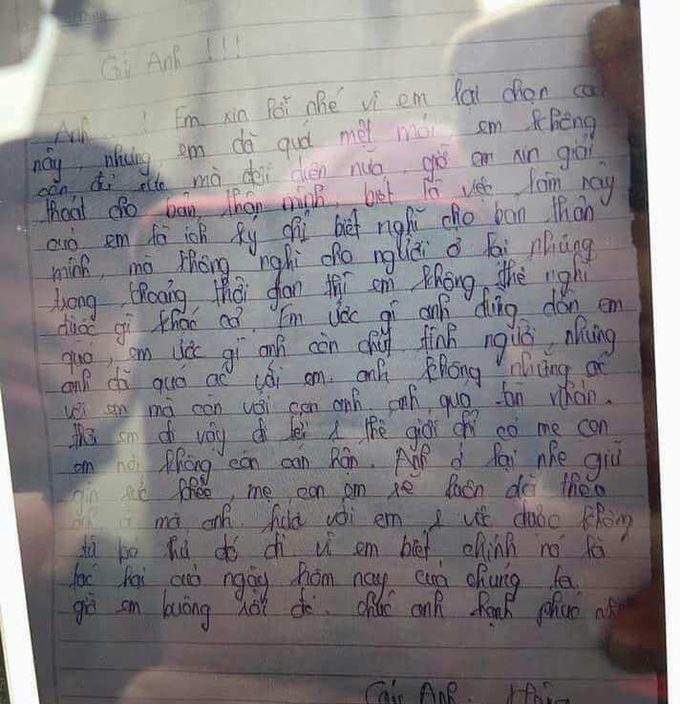 Gửi Anh !!!
Anh ! Em xin lỗi nhé vì em lại chọn cái
này, nhưng em đã quá mệt mỏi em không
còn đủ sức mà đối diện nữa, giờ em xin giải
thoát cho bản thân mình, biết là việc làm này
của em là ích kỷ chỉ biết nghĩ cho bản thân
mình, mà không nghĩ cho người ở lại nhưng
trong khoảng thời gian thì em không thể nghĩ
được gì khác cả. Em ước gì anh đừng dồn em
quá, em ước gì anh còn chút tính người, nhưng
anh đã quá ác với em. anh không những ác
với em mà còn với con anh anh quá tàn nhẫn.
thì em đi vậy đi tới 1 thế giới chỉ có mẹ con
em nơi không còn oán hận. Anh ở lại nhé giữ
gìn sức khỏe, mẹ con em sẽ luôn dõi theo
anh mà anh hứa với em 1 việc được không
từ bỏ đó đi vì em biết chính nó là
tác hại của ngày hôm nay của chúng ta.
giờ em buông rồi đó. chúc anh hạnh phúc
Anh.